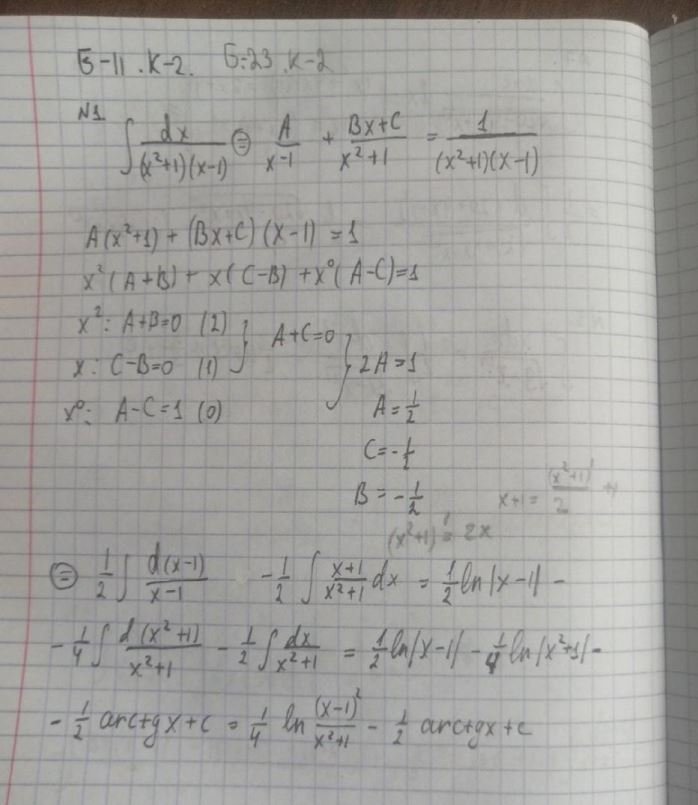 Б-11. К-2. Б-23. К-2
N1
∫ dx/((x²+1)(x-1)) ⊜ A/(x-1) + (Bx+C)/(x²+1) = 1/((x²+1)(x-1))
A(x²+1) + (Bx+C)(x-1) = 1
x²(A+B) + x(C-B) + x⁰(A-C)=1
x²: A+B=0 (2) } A+C=0
x: C-B=0 (1) } 2A=1
x⁰: A-C=1 (0) A=1/2
C=-1/2
B=-1/2 x+1= (x²+1)'/2 +1
(x²+1)' = 2x
⊜ 1/2 ∫ d(x-1)/(x-1) -1/2 ∫ (x+1)/(x²+1) dx = 1/2 ln|x-1| -
-1/4 ∫ d(x²+1)/(x²+1) - 1/2 ∫ dx/(x²+1) = 1/2 ln|x-1| - 1/4 ln|x²+1| -
- 1/2 arctgx+c = 1/4 ln (x-1)²/(x²+1) - 1/2 arctgx+c